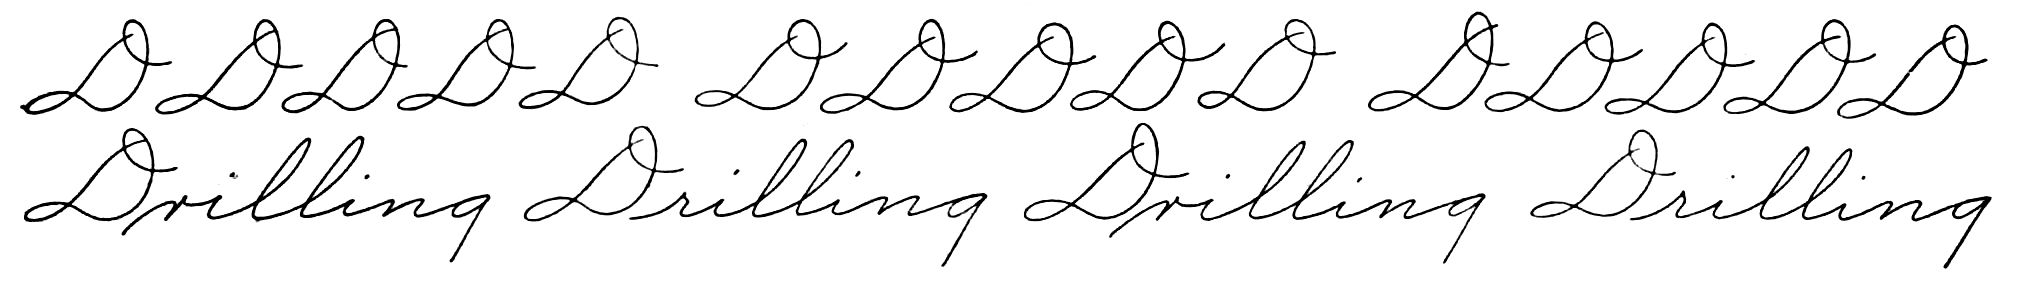 D D D D D D D D D D D D D D D
Drilling Drilling Drilling Drilling